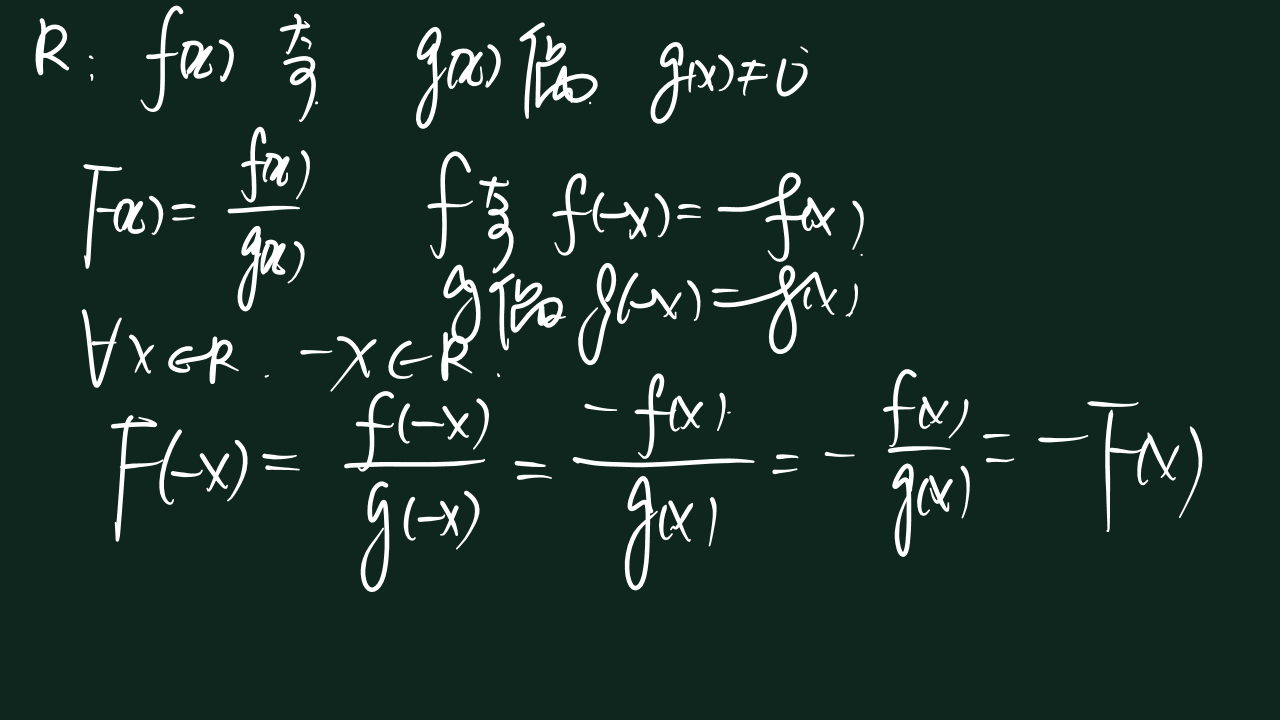 R: f(x) 奇. g(x) 偶. g(x)≠0
F(x) = f(x)/g(x) f奇 f(-x) = -f(x).
g偶 g(-x) = -g(x)
∀x∈R. -x∈R.
F(-x) = f(-x)/g(-x) = -f(x)/g(x) = - f(x)/g(x) = -F(x)